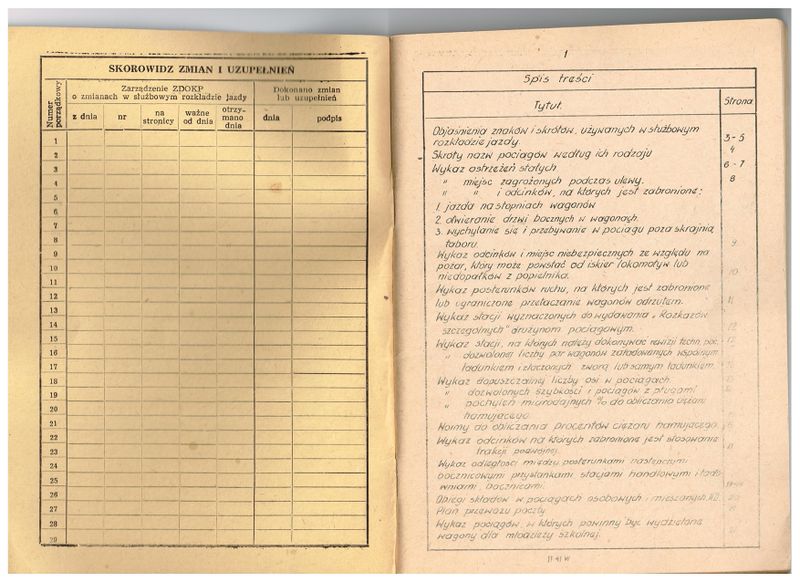 SKOROWIDZ ZMIAN I UZUPEŁNIEŃ
Numer porządkowy
Zarządzenie ZDOKP
o zmianach w służbowym rozkładzie jazdy
Dokonano zmian
lub uzupełnień
z dnia
nr
na stronicy
ważne od dnia
otrzymano dnia
dnia
podpis
1
2
3
4
5
6
7
8
9
10
11
12
13
14
15
16
17
18
19
20
21
22
23
24
25
26
27
28
29
1
Spis treści
Tytuł.
Strona
Objaśnienia znaków i skrótów, używanych w służbowym
rozkładzie jazdy. 3-5
Skróty nazw pociągów według ich rodzaju 4
Wykaz ostrzeżeń stałych 6-7
" miejsc zagrożonych podczas ulewy. 8
" " i odcinków, na których jest zabronione:
1. jazda na stopniach wagonów
2. otwieranie drzwi bocznych w wagonach.
3. wychylanie się i przebywanie w pociągu poza skrajnią
taboru. 9
Wykaz odcinków i miejsc niebezpiecznych ze względu na
pożar, który może powstać od iskier lokomotyw lub
niedopałków z popielnika. 10
Wykaz posterunków ruchu, na których jest zabronione
lub ograniczone przetaczanie wagonów odrzutem. 11
Wykaz stacji wyznaczonych do wydawania „Rozkazów
szczególnych" drużynom pociągowym.
Wykaz stacji, na których należy dokonywać rewizji techn. poc.
" dozwolonej liczby par wagonów załadowanych wspólnym
ładunkiem i złączonych zworą lub samym ładunkiem.
Wykaz dopuszczalnej liczby osi w pociągach.
" dozwolonych szybkości i pociągów z pługami
" pochyleń miarodajnych % do obliczania ciężaru
hamującego.
Normy do obliczania procentów ciężaru hamującego
Wykaz odcinków na których zabronione jest stosowanie
trakcji podwójnej.
Wykaz odległości między posterunkami następczymi
bocznicowymi przystankami stacjami handlowymi i ładowniami, bocznicami.
Obiegi składów w pociągach osobowych i mieszanych.
Plan przewozu poczty
Wykaz pociągów, w których powinny być wydzielone
wagony dla młodzieży szkolnej.